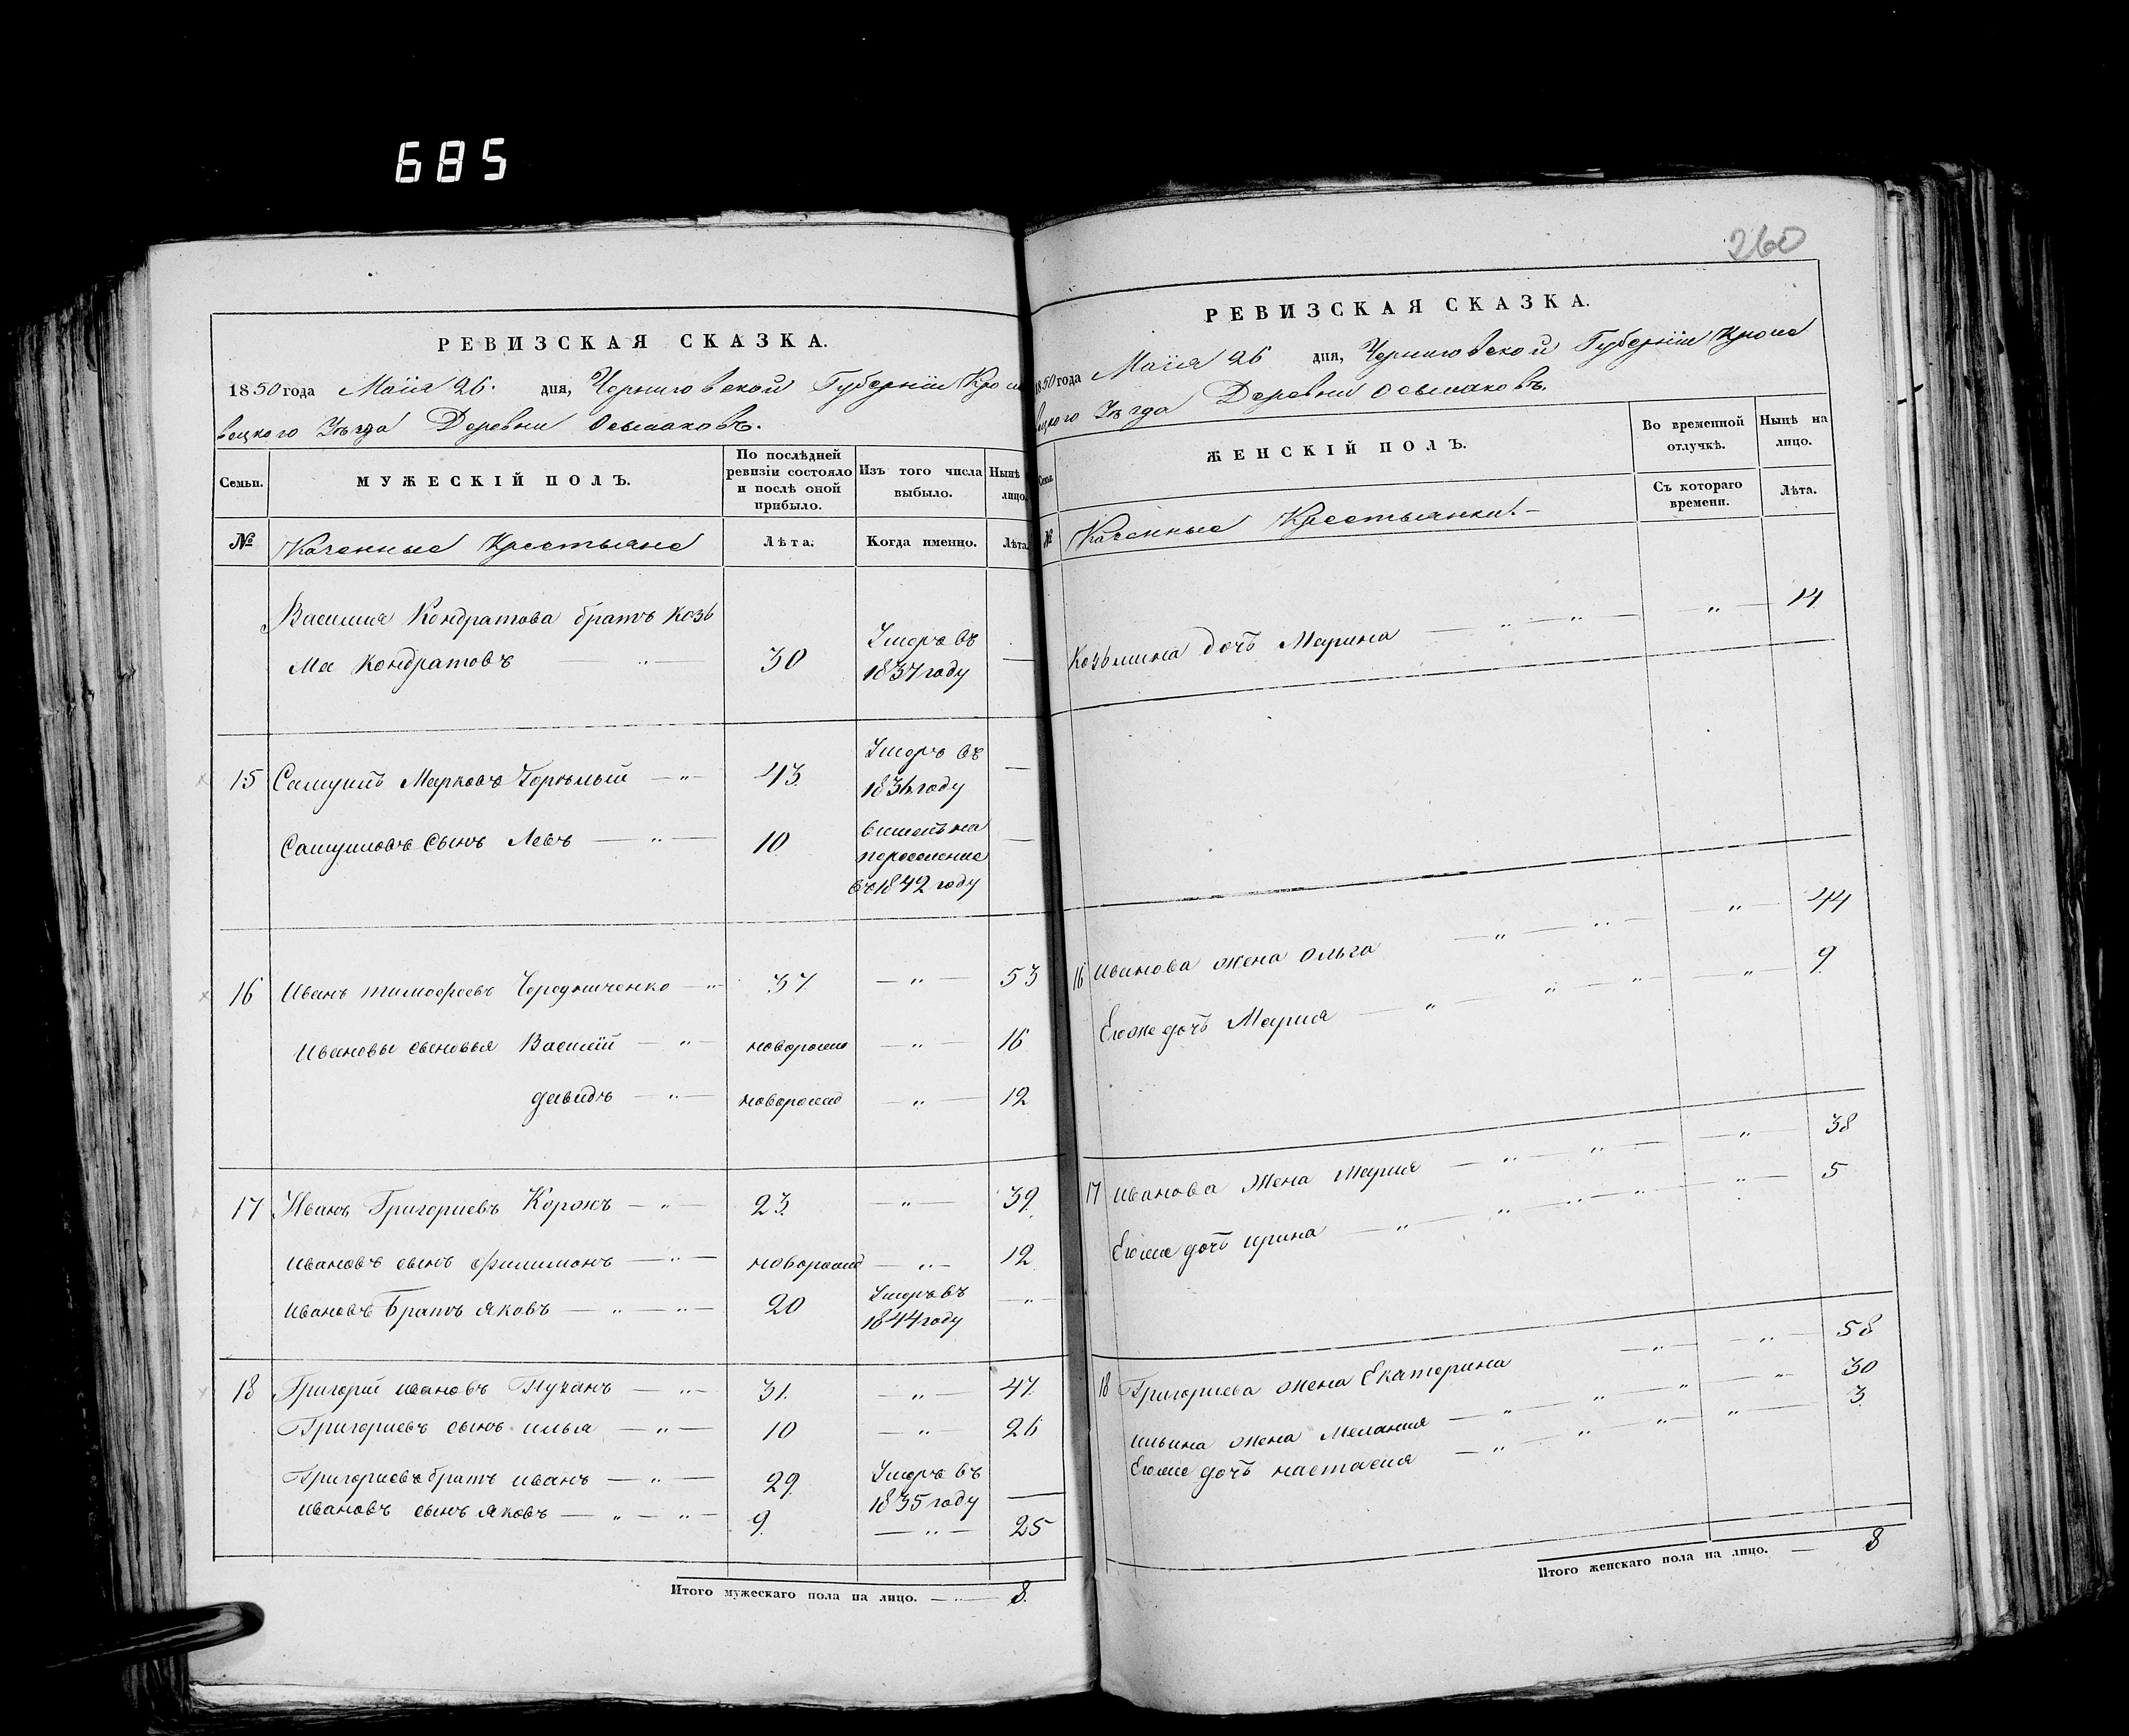 685
260
РЕВИЗСКАЯ СКАЗКА.
1850 года Маія 26. дня, Черниговской Губерніи Кроле
вецкого Уѣзда Деревни Осьмаковъ.
Семьи.
МУЖЕСКІЙ ПОЛЪ.
По послѣдней ревизіи состояло и послѣ оной прибыло.
Изъ того числа выбыло.
Нынѣ лицо.
№ Казенные Крестьяне Лѣта. Когда именно. Лѣта.
Василия Кондратова братъ Козь
ма Кондратовъ — „ — 30 Умеръ въ 1837 году —
15 Самуилъ Марковъ — „ — 43. Умеръ въ 1836 году —
Самуиловъ Сынъ Левъ — „ — 10. на переселение въ 1842 году —
16 Иванъ тимофеевъ Чередниченко — „ 37 — „ — 53
Ивановы сыновья Василій — „ — новорожд — „ — 16
давидъ — „ — новорожд — „ — 12.
17 Иванъ Григориевъ Коржъ — „ — 23. — „ — 39.
ивановъ сынъ филимонъ — „ — новорожд — „ — 12.
ивановъ Братъ яковъ — „ — „ — 20 Умеръ въ 1844 году — „ —
18 Григорій ивановъ — „ — 31. — „ — 47.
Григориевъ сынъ илья — „ — 10 — „ — 26
Григориевъ братъ иванъ — „ — 29. Умеръ въ 1835 году —
ивановъ сынъ яковъ — „ — „ — 9. — „ — 25
Итого мужескаго пола на лицо. — „ — 8.
РЕВИЗСКАЯ СКАЗКА.
1850 года Маія 26 дня, Черниговской Губерніи Кроле
вецкого Уѣзда Деревни Осьмаковъ.
Семьи.
ЖЕНСКІЙ ПОЛЪ.
Во временной отлучкѣ.
Нынѣ на лицо.
Съ котораго времени.
Лѣта.
№ Казенные Крестьянки. —
Козьмина дочъ Марина — „ — „ — — „ — 14
16 Иванова жена Ольга — „ — „ — — „ — 44
Егоже дочъ Мария — „ — „ — „ — — „ — 9.
17 Иванова Жена Мария — „ — „ — — „ — 38
Егоже дочъ ирина — „ — „ — „ — „ — — „ — 5
18 Григориева жена Екатерина — „ — — „ — 58
ильина жена Мелания — „ — „ — „ — — „ — 30
Егоже дочъ настасия — „ — „ — „ — — „ — 3.
Итого женскаго пола на лицо. — 8